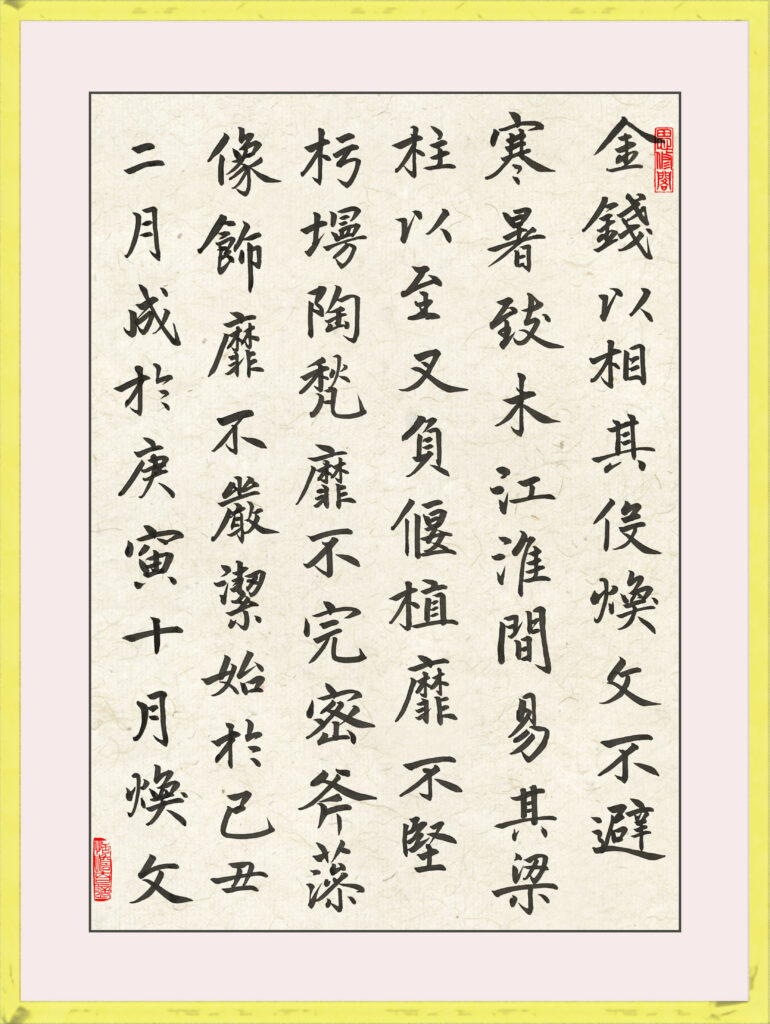 金錢以相其伇煥文不避
寒暑致木江淮間易其梁
柱以至叉負偃植靡不堅
杇墁陶甃靡不完密斧藻
像飾靡不嚴潔始於己丑
二月成於庚寅十月煥文